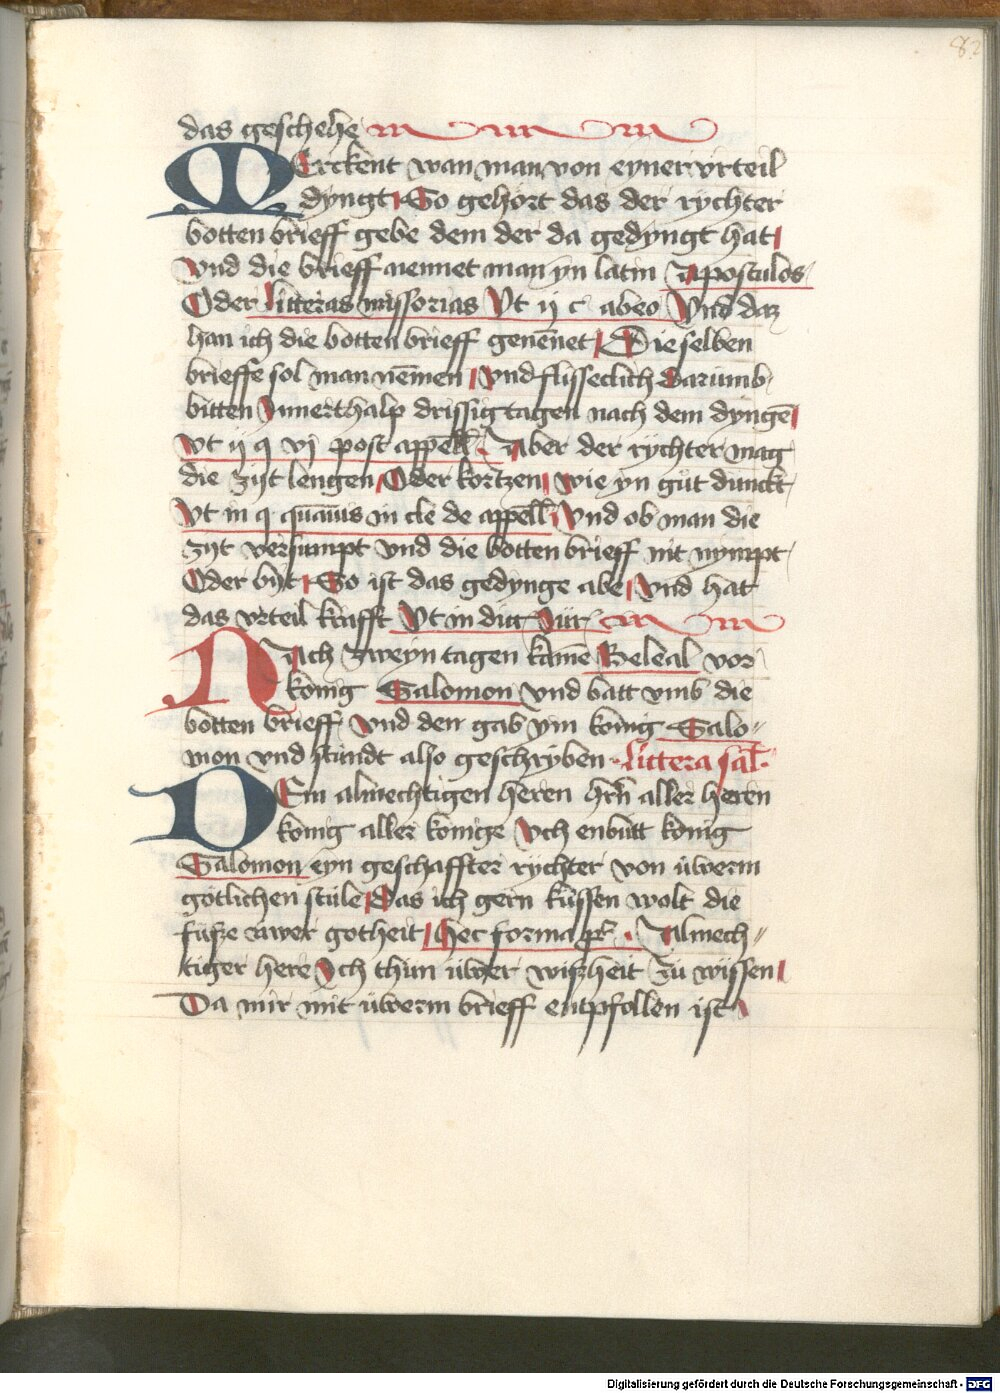 82
das geschehe
MErckent wan man von eyner vrteil
dyngt So gehort das der rychter
botten brieff gebe dem der da gedyngt hat
vnd die brieff nennet man yn latin Apostulos
Oder litteras missorias Vt ij c abeo Vnd daz
han ich die botten brieff genēnet Die selben
brieffe sol man nēmen vnd flisseclich darumb
bitten Innerthalp drissig tagen nach dem dyngē
vt ij q vj post appell Aber der rychter mag
die zyt lengen Oder kortzen wie yn gůt dunckt
Vt in q quāuis in cle de appell Vnd ob man die
zyt versumpt vnd die botten brieff nit nympt
Oder byt So ist das gedynge abe vnd hat
das vrteil krafft Vt in
NAch zweyn tagen kame Beleal vor
konig Salomon vnd batt vmb die
botten brieff vnd den gab ym konig Salo-
mon vnd stundt also geschryben littera sal
DEm almechtigen heren hrn aller heren
konig aller konige Vch enbutt konig
Salomon eyn geschaffter rychter von üwerm
gotlichen stule Das ich gern kussen wolt die
fusze uwer gotheit hec forma Almech-
tiger here Ich thun üwer wiszheit zu wissen
Da mir mit üwerm brieff entpfollen ist
Digitalisierung gefördert durch die Deutsche Forschungsgemeinschaft - DFG